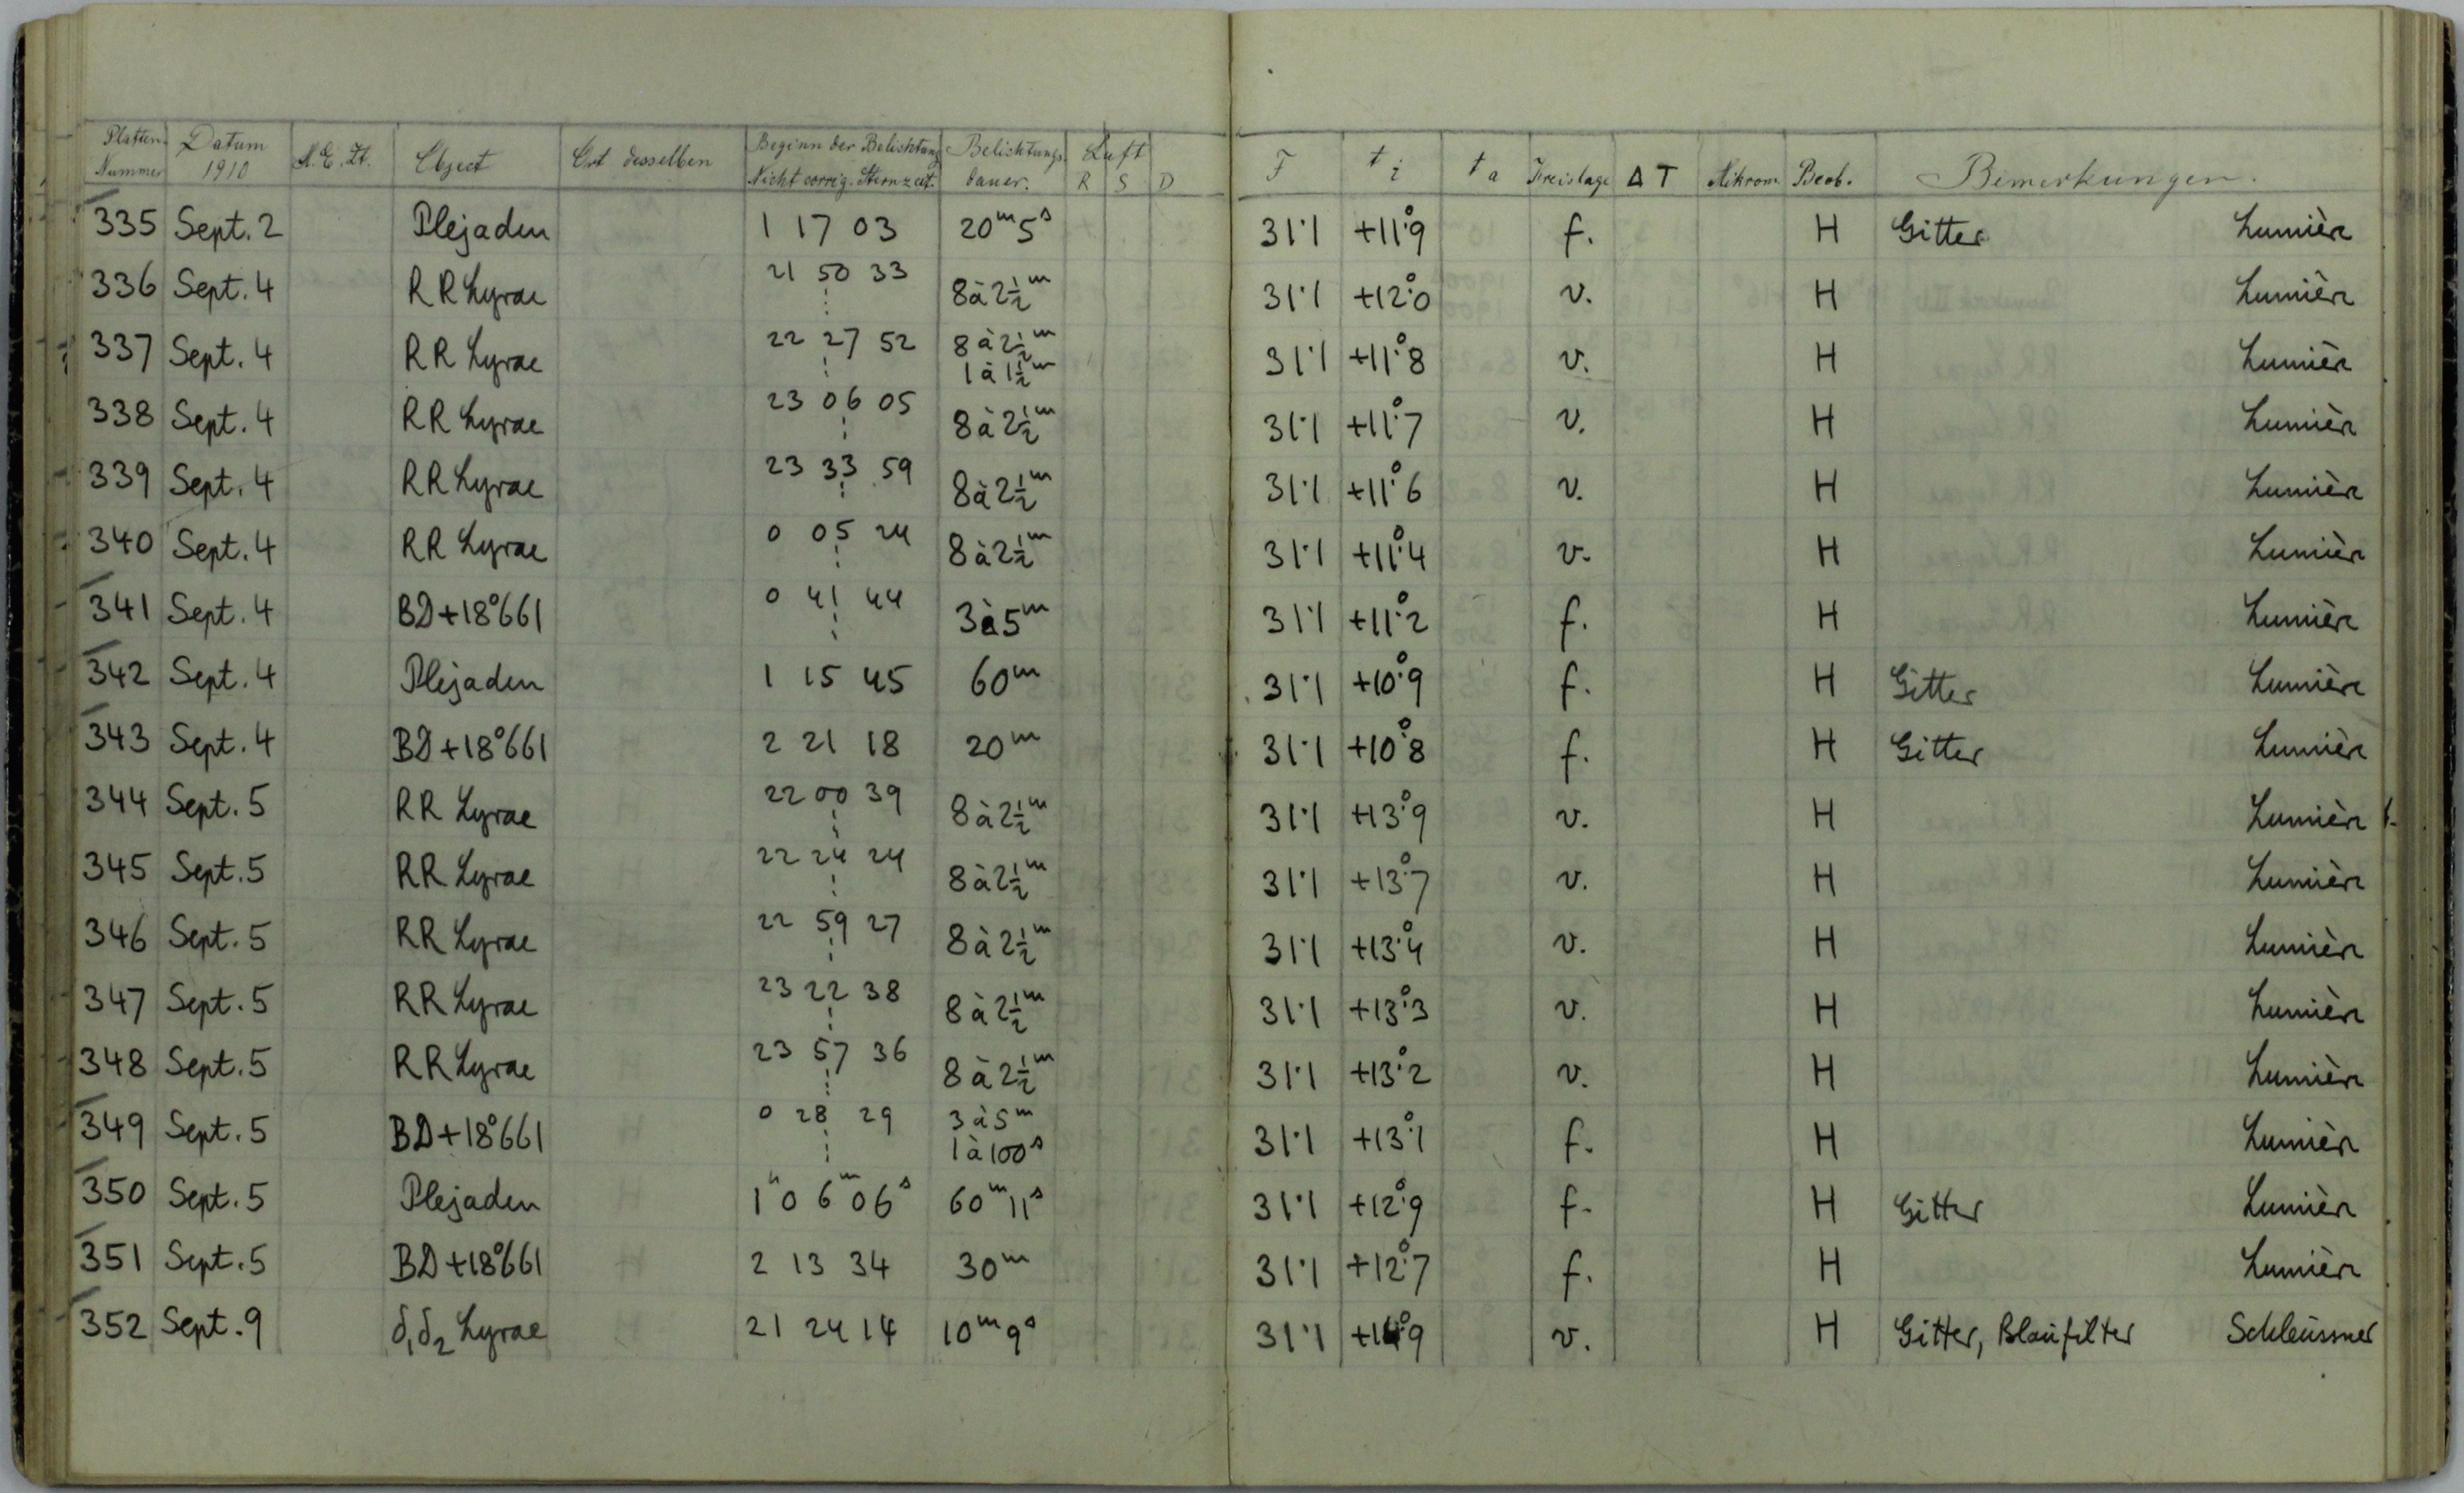 Platten Nummer Datum 1910 M.E.Zt. Object Ort desselben Beginn der Belichtung Nicht corrig. Sternzeit. Belichtungs dauer. Luft R S D F t i t a Kreislage Δ T Mikrom Beob. Bemerkungen.
335 Sept. 2 Plejaden 1 17 03 20ᵐ5ˢ 31.1 +11°.9 f. H Gitter Lumière
336 Sept. 4 RR Lyrae 21 50 33 8 à 2½ᵐ 31.1 +12°.0 v. H Lumière
337 Sept. 4 RR Lyrae 22 27 52 8 à 2½ᵐ 1 à 1½ᵐ 31.1 +11°.8 v. H Lumière
338 Sept. 4 RR Lyrae 23 06 05 8 à 2½ᵐ 31.1 +11°.7 v. H Lumière
339 Sept. 4 RR Lyrae 23 33 59 8 à 2½ᵐ 31.1 +11°.6 v. H Lumière
340 Sept. 4 RR Lyrae 0 05 24 8 à 2½ᵐ 31.1 +11°.4 v. H Lumière
341 Sept. 4 BD+18°661 0 41 44 3 à 5ᵐ 31.1 +11°.2 f. H Lumière
342 Sept. 4 Plejaden 1 15 45 60ᵐ 31.1 +10°.9 f. H Gitter Lumière
343 Sept. 4 BD+18°661 2 21 18 20ᵐ 31.1 +10°.8 f. H Gitter Lumière
344 Sept. 5 RR Lyrae 22 00 39 8 à 2½ᵐ 31.1 +13°.9 v. H Lumière
345 Sept. 5 RR Lyrae 22 24 24 8 à 2½ᵐ 31.1 +13°.7 v. H Lumière
346 Sept. 5 RR Lyrae 22 59 27 8 à 2½ᵐ 31.1 +13°.4 v. H Lumière
347 Sept. 5 RR Lyrae 23 22 38 8 à 2½ᵐ 31.1 +13°.3 v. H Lumière
348 Sept. 5 RR Lyrae 23 57 36 8 à 2½ᵐ 31.1 +13°.2 v. H Lumière
349 Sept. 5 BD+18°661 0 28 29 3 à 5ᵐ 1 à 100ˢ 31.1 +13°.1 f. H Lumière
350 Sept. 5 Plejaden 1ʰ 06ᵐ 06ˢ 60ᵐ11ˢ 31.1 +12°.9 f. H Gitter Lumière
351 Sept. 5 BD+18°661 2 13 34 30ᵐ 31.1 +12°.7 f. H Lumière
352 Sept. 9 δ₁δ₂ Lyrae 21 24 14 10ᵐ9ˢ 31.1 +14°.9 v. H Gitter, Blaufilter Schleussner